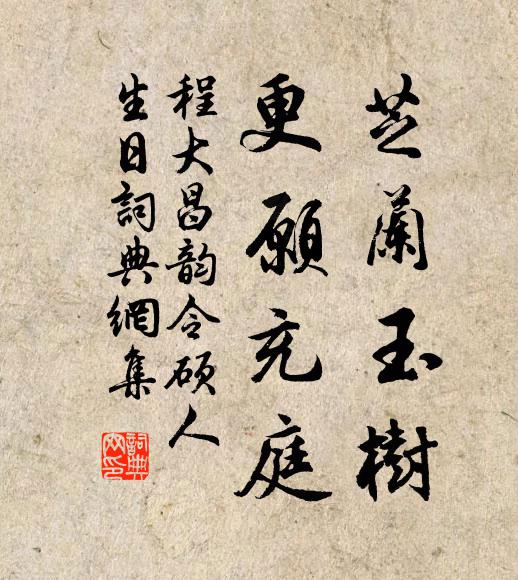 芝蘭玉樹
更願充庭
程大昌韵令碩人
生日詞典網集
詞典網印